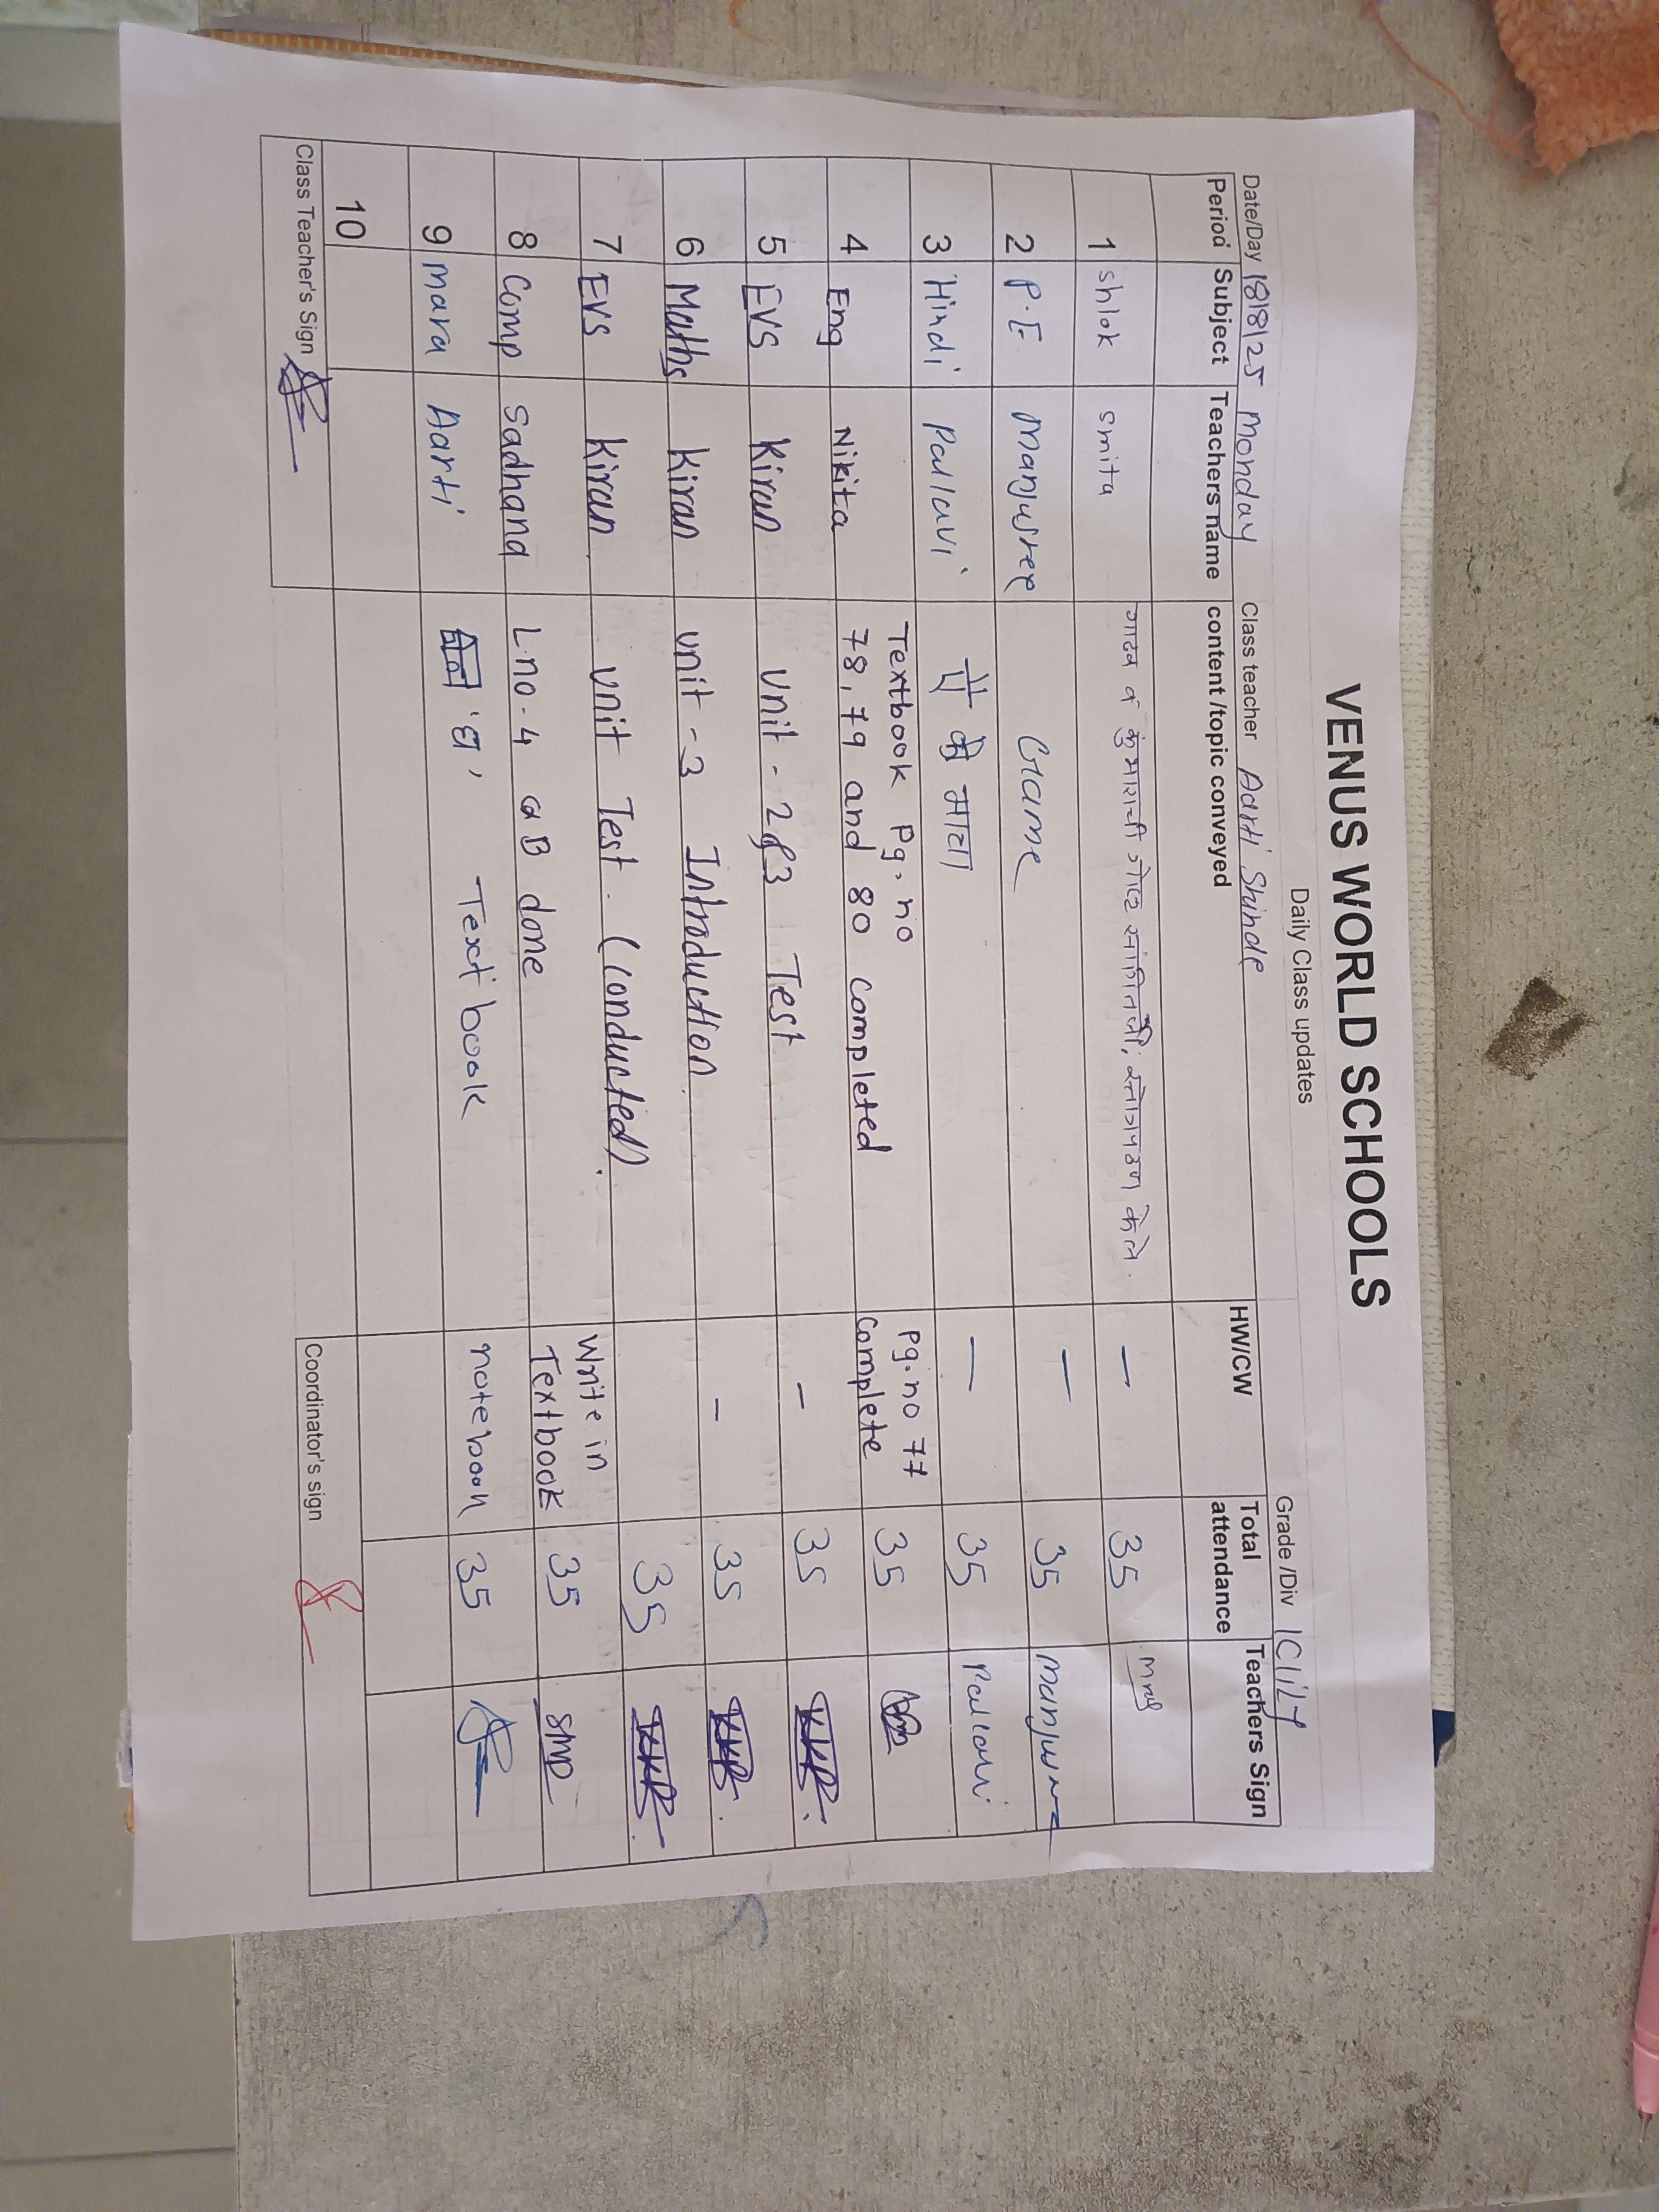 VENUS WORLD SCHOOLS
Daily Class updates
Date/Day 18/8/25 Monday Class teacher Aarti Shinde Grade /Div
Period Subject Teachers name content /topic conveyed HW/CW Total attendance Teachers Sign
1 shlok smita गाढव व कुंभाराची गोष्ट सांगितली; केले. — 35
2 P.E Manjusree Game — 35
3 Hindi Pallavi की मात्रा — 35 Pallavi
4 Eng Nikita Textbook Pg. no Pg. no 77 35
78, 79 and 80 completed Complete
5 EVS Kiran Unit - 2&3 Test - 35
6 Maths Kiran Unit - 3 Introduction. - 35
7 EVS Kiran Unit Test. (Conducted). 35
8 Comp Sadhana Lno-4 B done Write in 35
Textbook
9 Mara Aarti 'घ' Textbook notebook 35
10
Class Teacher's Sign Coordinator's sign